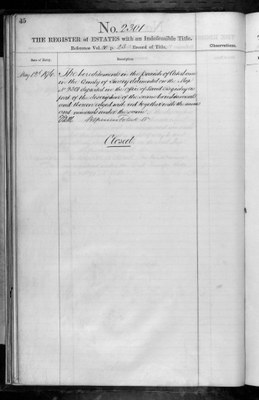 46
No. 2301
THE REGISTER of ESTATES with an Indefeasible Title.
Reference Vol. No. 25 Record of Title.
Observations.
Date of Entry.
Description.
May 19th 1876
The hereditaments in the Parish of
in the County of Surrey delineated on the Map
No. 2301 deposited in the office of Land Registry as
part of the description of the same hereditaments
and thereon edged with red together with the mines
and minerals under the same
Closed